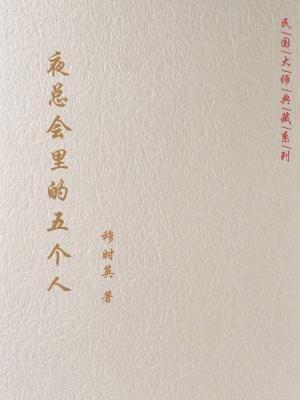 民|国|大|师|典|藏|系|列
夜总会里的五个人
穆时英 著